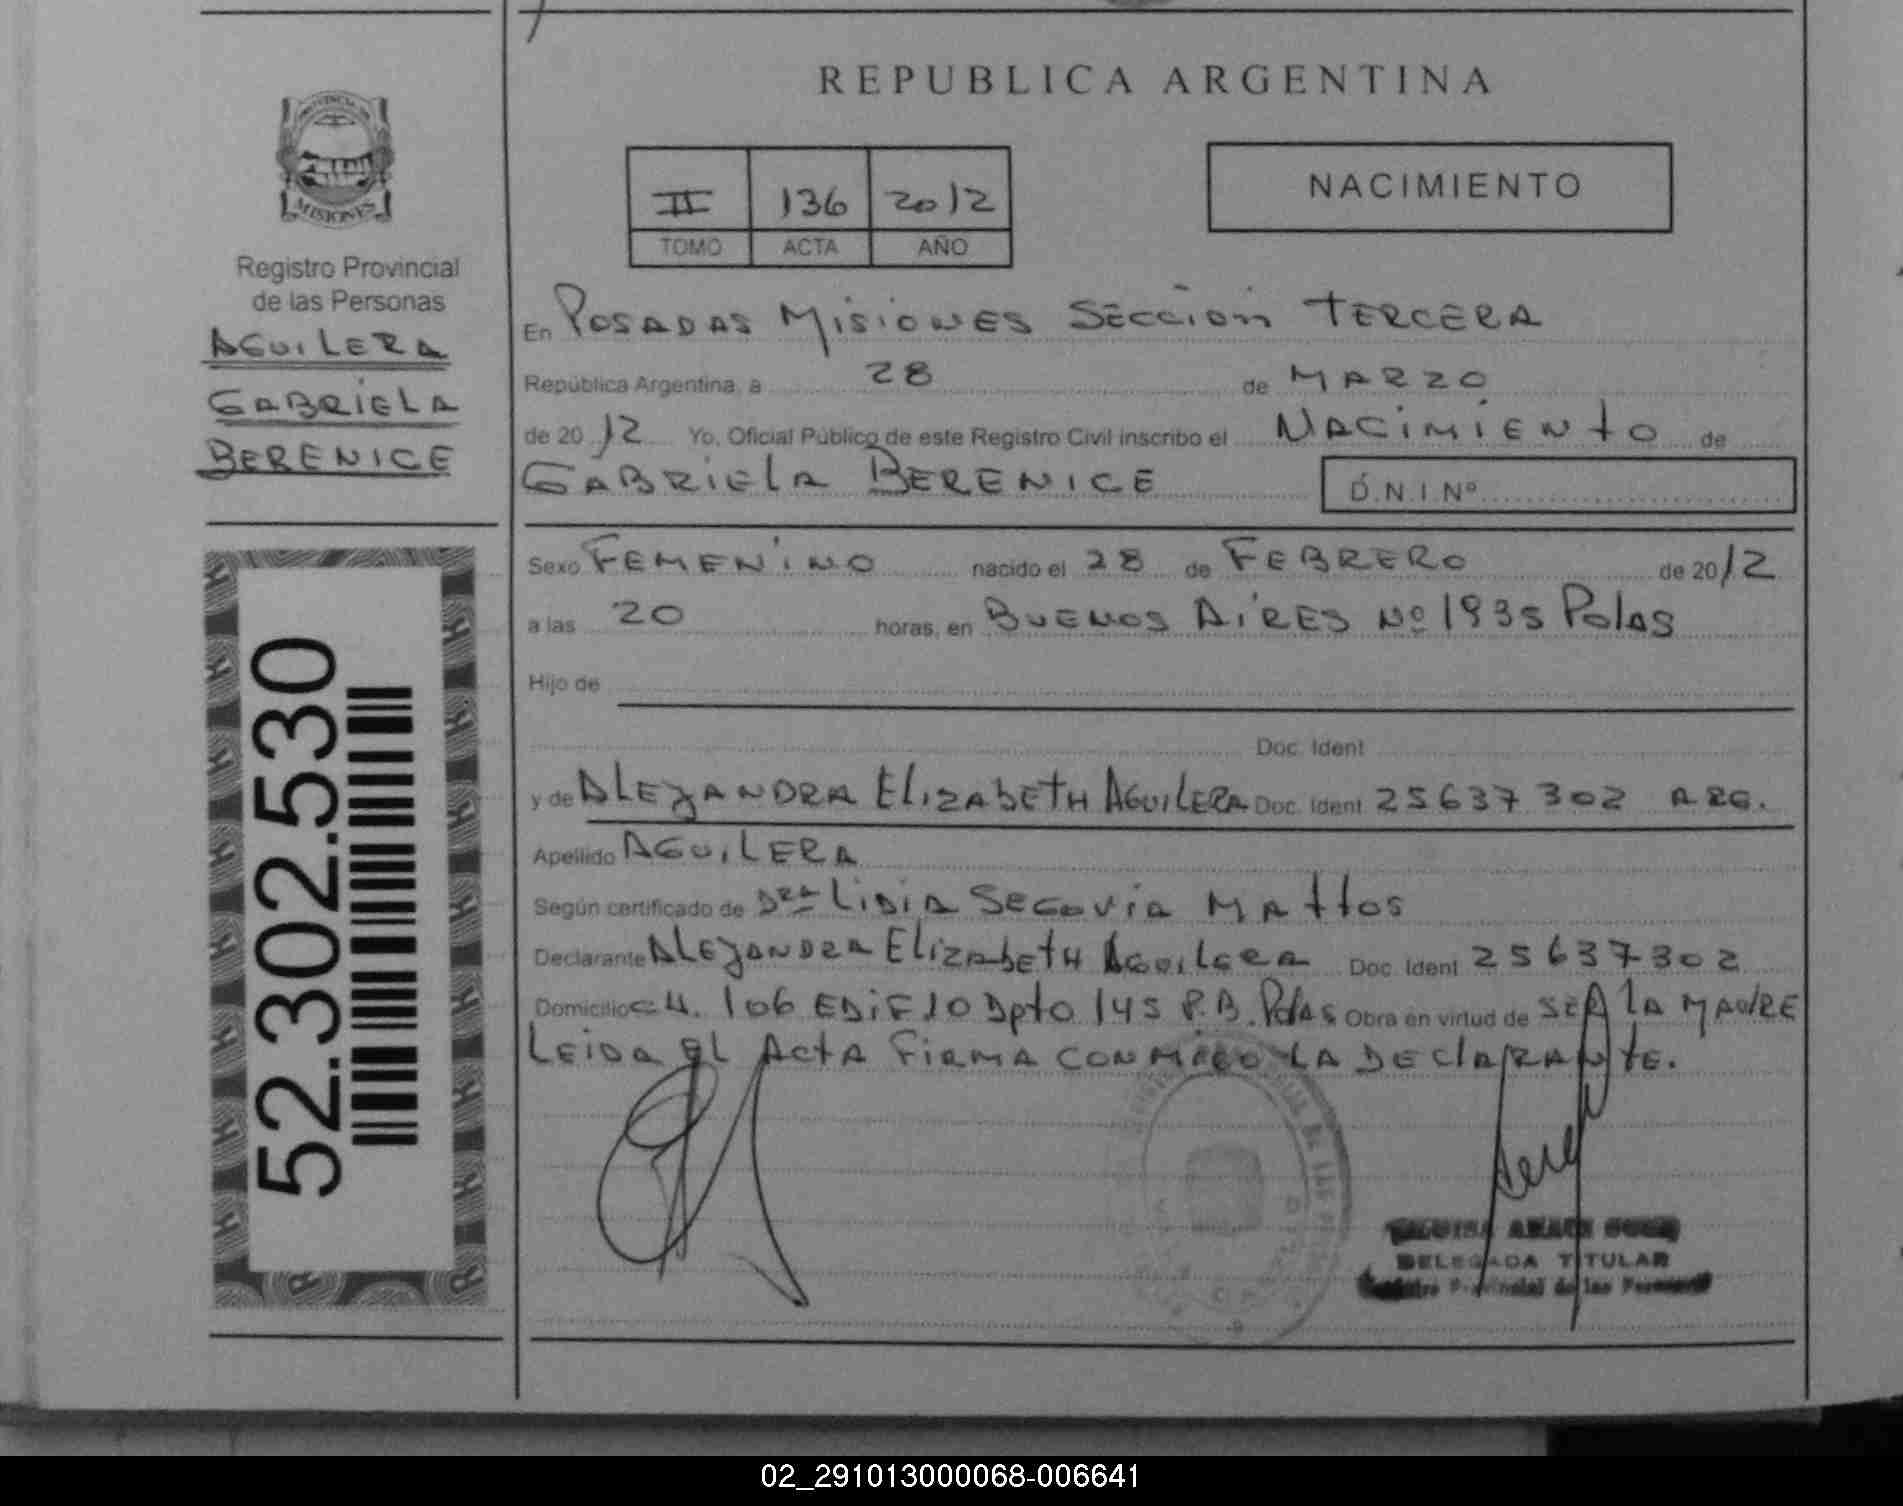 REPUBLICA ARGENTINA
PROVINCIA DE
MISIONES
Registro Provincial
de las Personas
AGUILERA
GABRIELA
BERENICE
52.302.530
II 136 2012
TOMO ACTA AÑO
NACIMIENTO
En POSADAS MISIONES SECCION TERCERA
República Argentina, a 28 de MARZO
de 2012 Yo, Oficial Público de este Registro Civil inscribo el NACIMIENTO de
GABRIELA BERENICE D.N.I Nº
Sexo FEMENINO nacido el 28 de FEBRERO de 2012
a las 20 horas, en BUENOS AIRES Nº 1935 Pdas
Hijo de
Doc. Ident
y de ALEJANDRA ELIZABETH AGUILERA Doc. Ident 25637302 ARG.
Apellido AGUILERA
Según certificado de Dra LIDIA SEGOVIA MATTOS
Declarante ALEJANDRA ELIZABETH AGUILERA Doc. Ident 25637302
Domicilio CH. 106 EDIF 10 Dpto 145 P.B. Pdas Obra en virtud de SER LA MADRE
LEIDA EL ACTA FIRMA CONMIGO LA DECLARANTE.
DELEGADA TITULAR
Provincial de las Personas
02_291013000068-006641